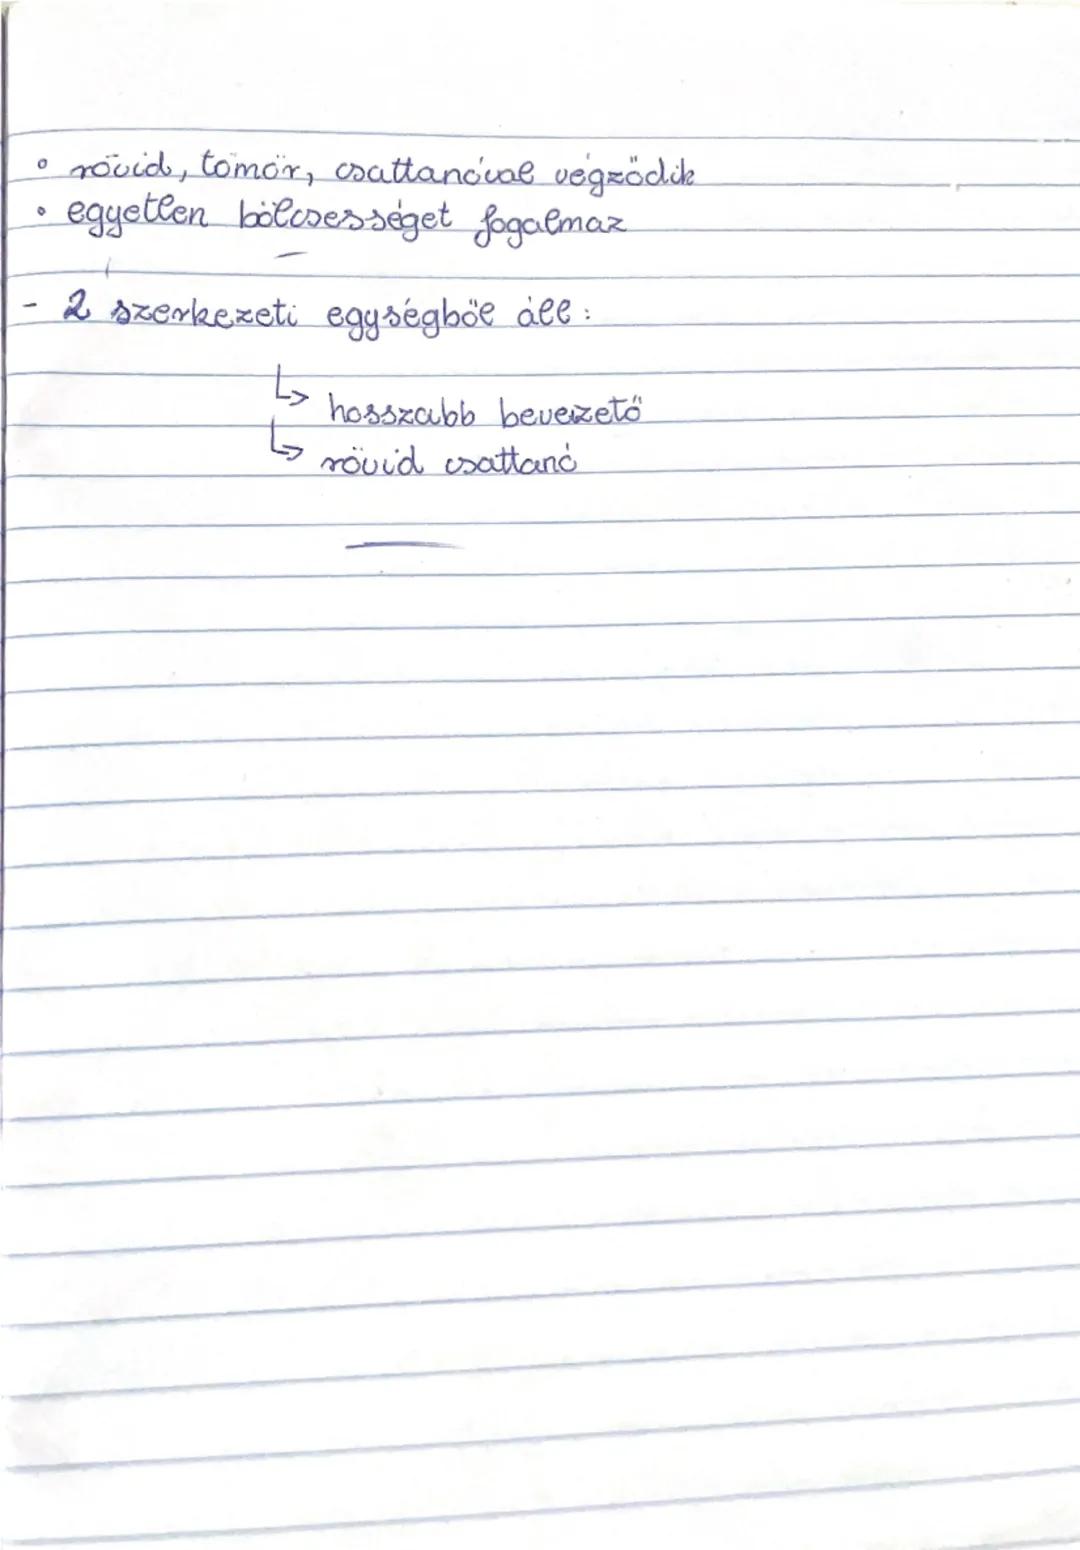 • rövid, tömör, csattanóval végződik
• egyetlen bölcsességet fogalmaz
- 2 szerkezeti egységből áll:
↳ hosszabb bevezető
↳ rövid csattanó